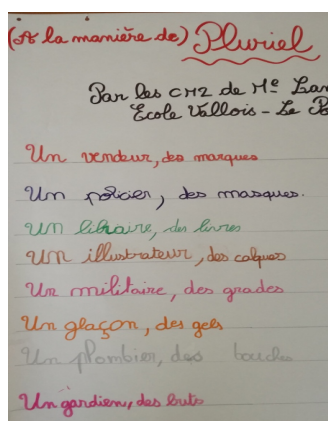 (A la manière de) Pluriel
Par les CM2 de Me
École Vallois - Le
Un vendeur, des marques
Un policier, des masques.
Un libraire, des livres
Un illustrateur, des calques
Un militaire, des grades
Un glaçon, des gels
Un plombier, des
Un gardien, des buts